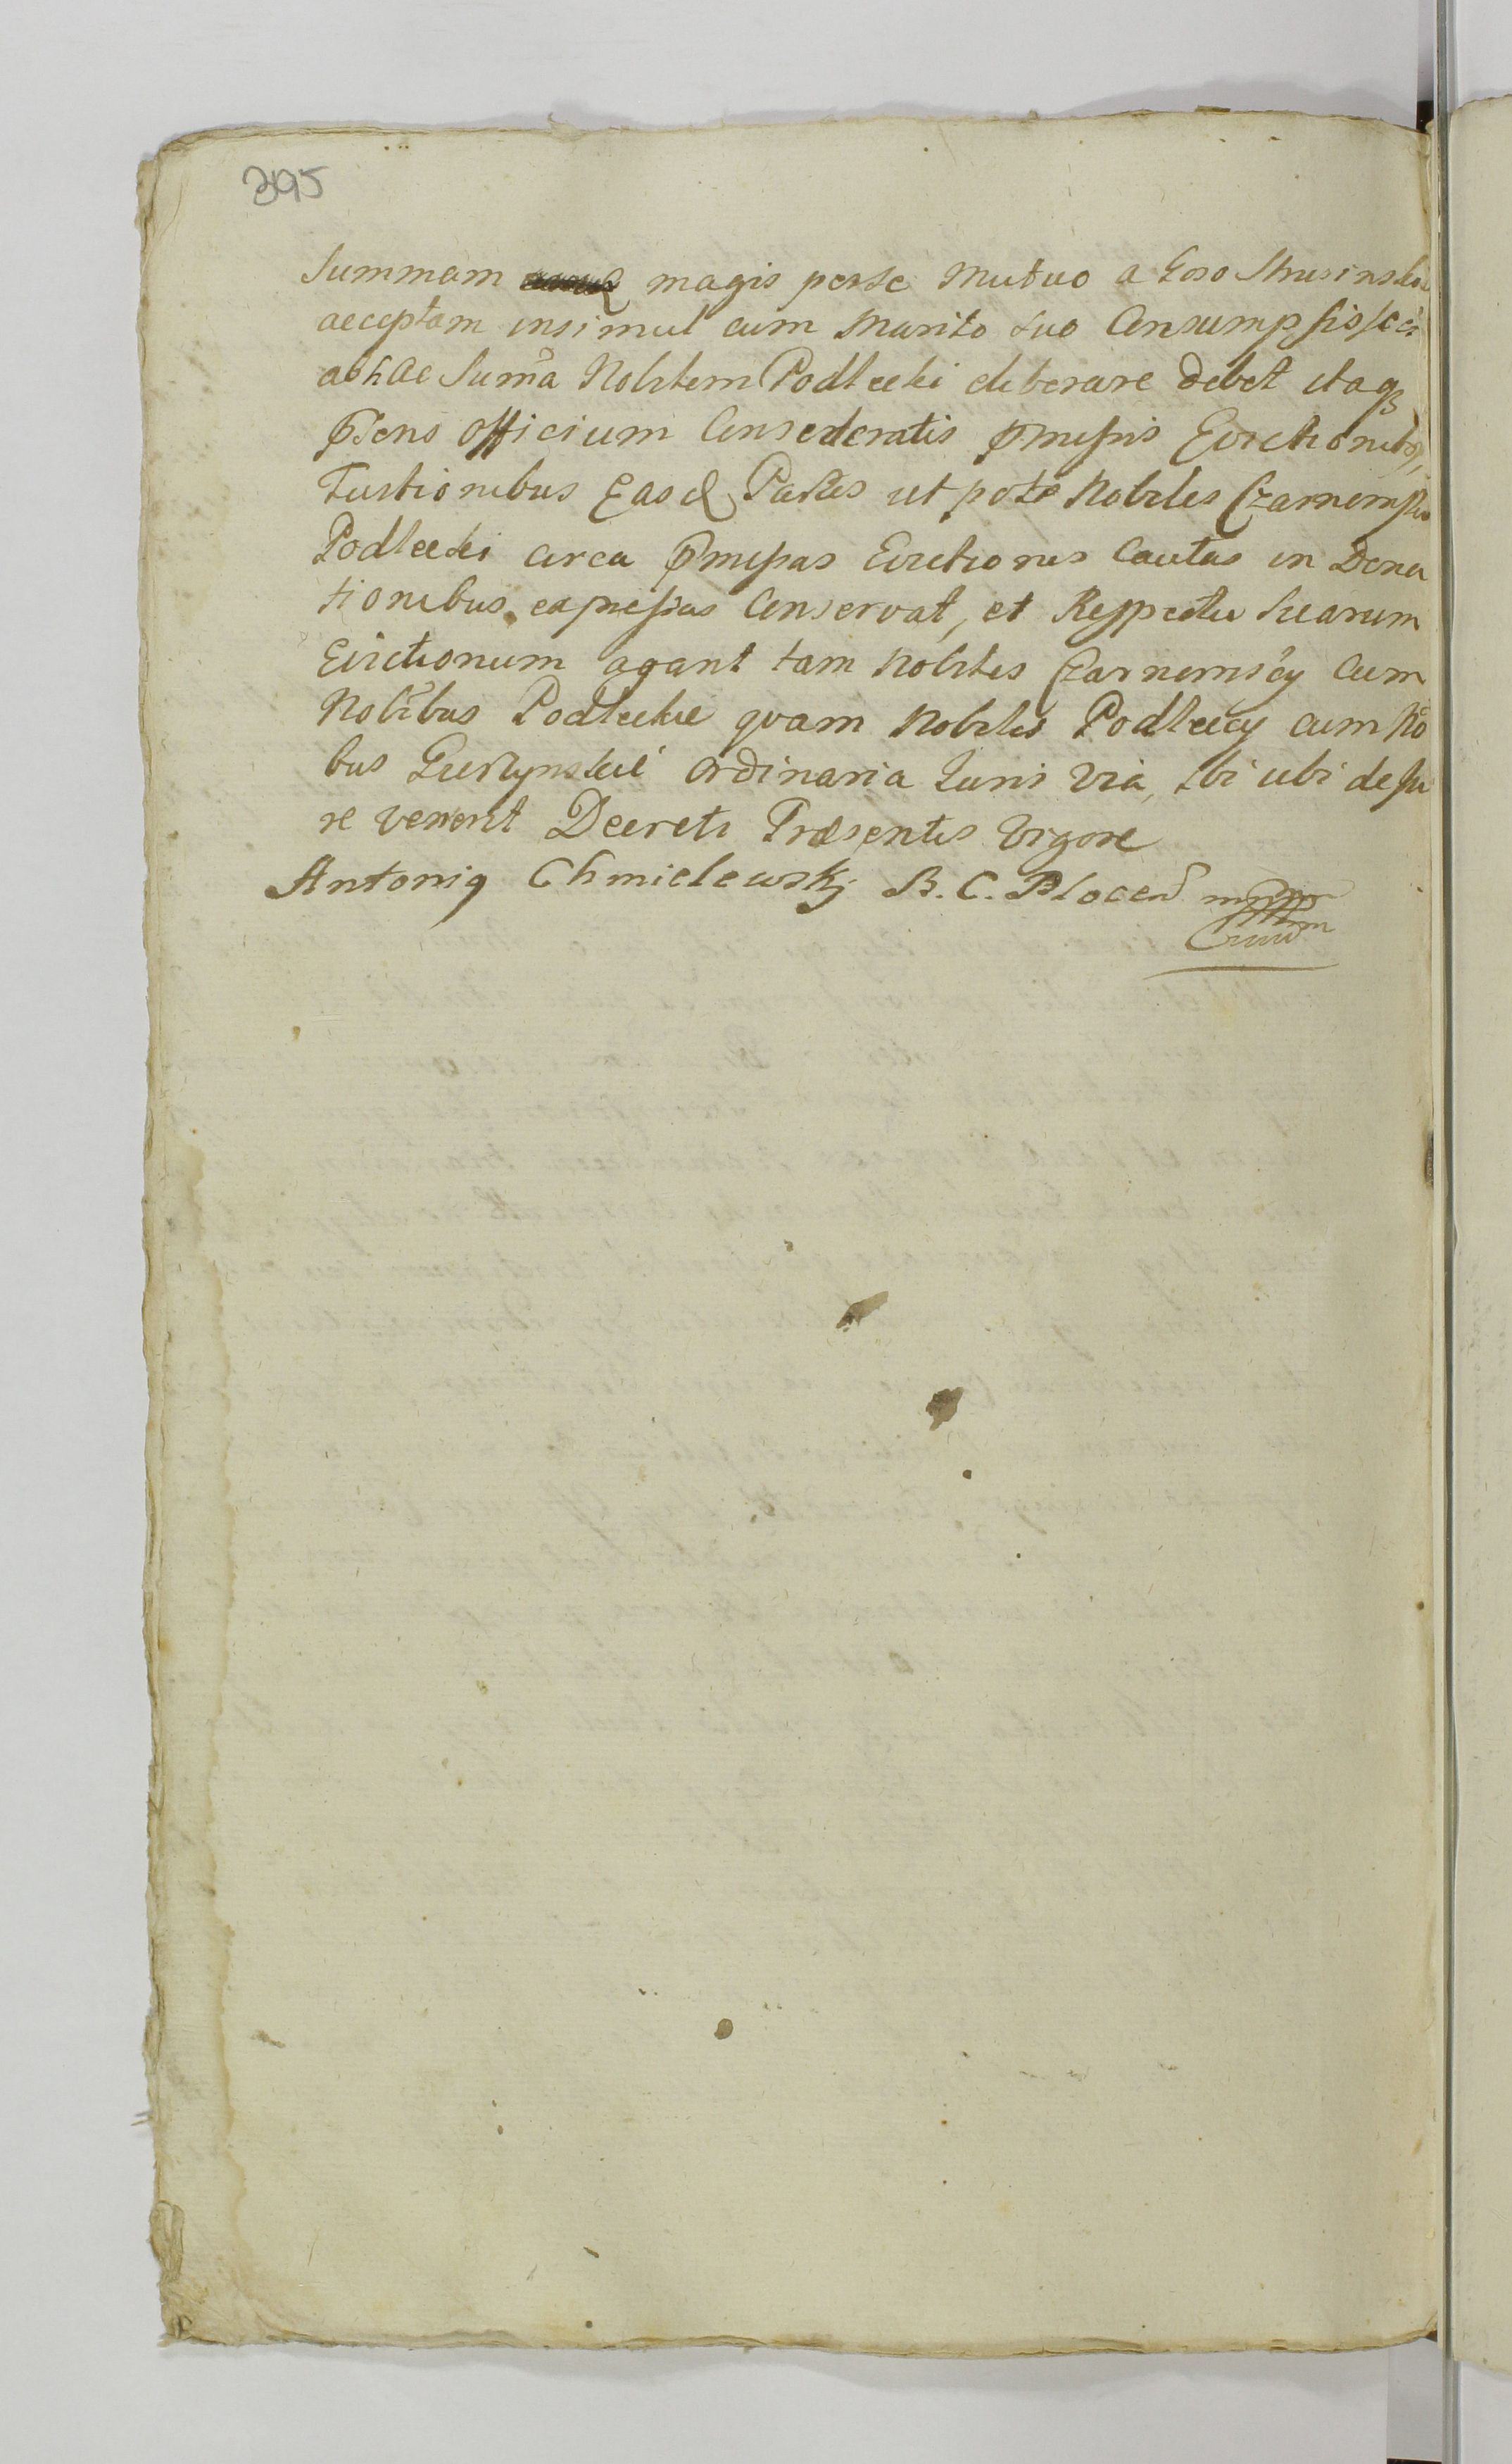 395
Summam magis per se Mutuo a Goso Strusinskie
acceptam insimul cum Marito suo Consumpsisset
ab hac Sum̃a Nobilem Podlecki eliberare debet itaq3
pñsens Officium Consederatis pmissis Evictionib9,
Tuitionibus Easd Partes ut pote Nobiles Czarnomskie
Podlecki circa pmissas Evictiones Cautas in Dona
tionibus expressas Conservat, et Respectu Suarum
Evictionum agant tam Nobiles Czarnomscy Cum
Nobĩbus Podleckie quam Nobiles Podleccy cum No
bus ordinaria Iuris via, ibi ubi de Iu
re venerit Decreti Præsentis Vigore
Antoni9 Chmielewskj B. C. Plocen mpp